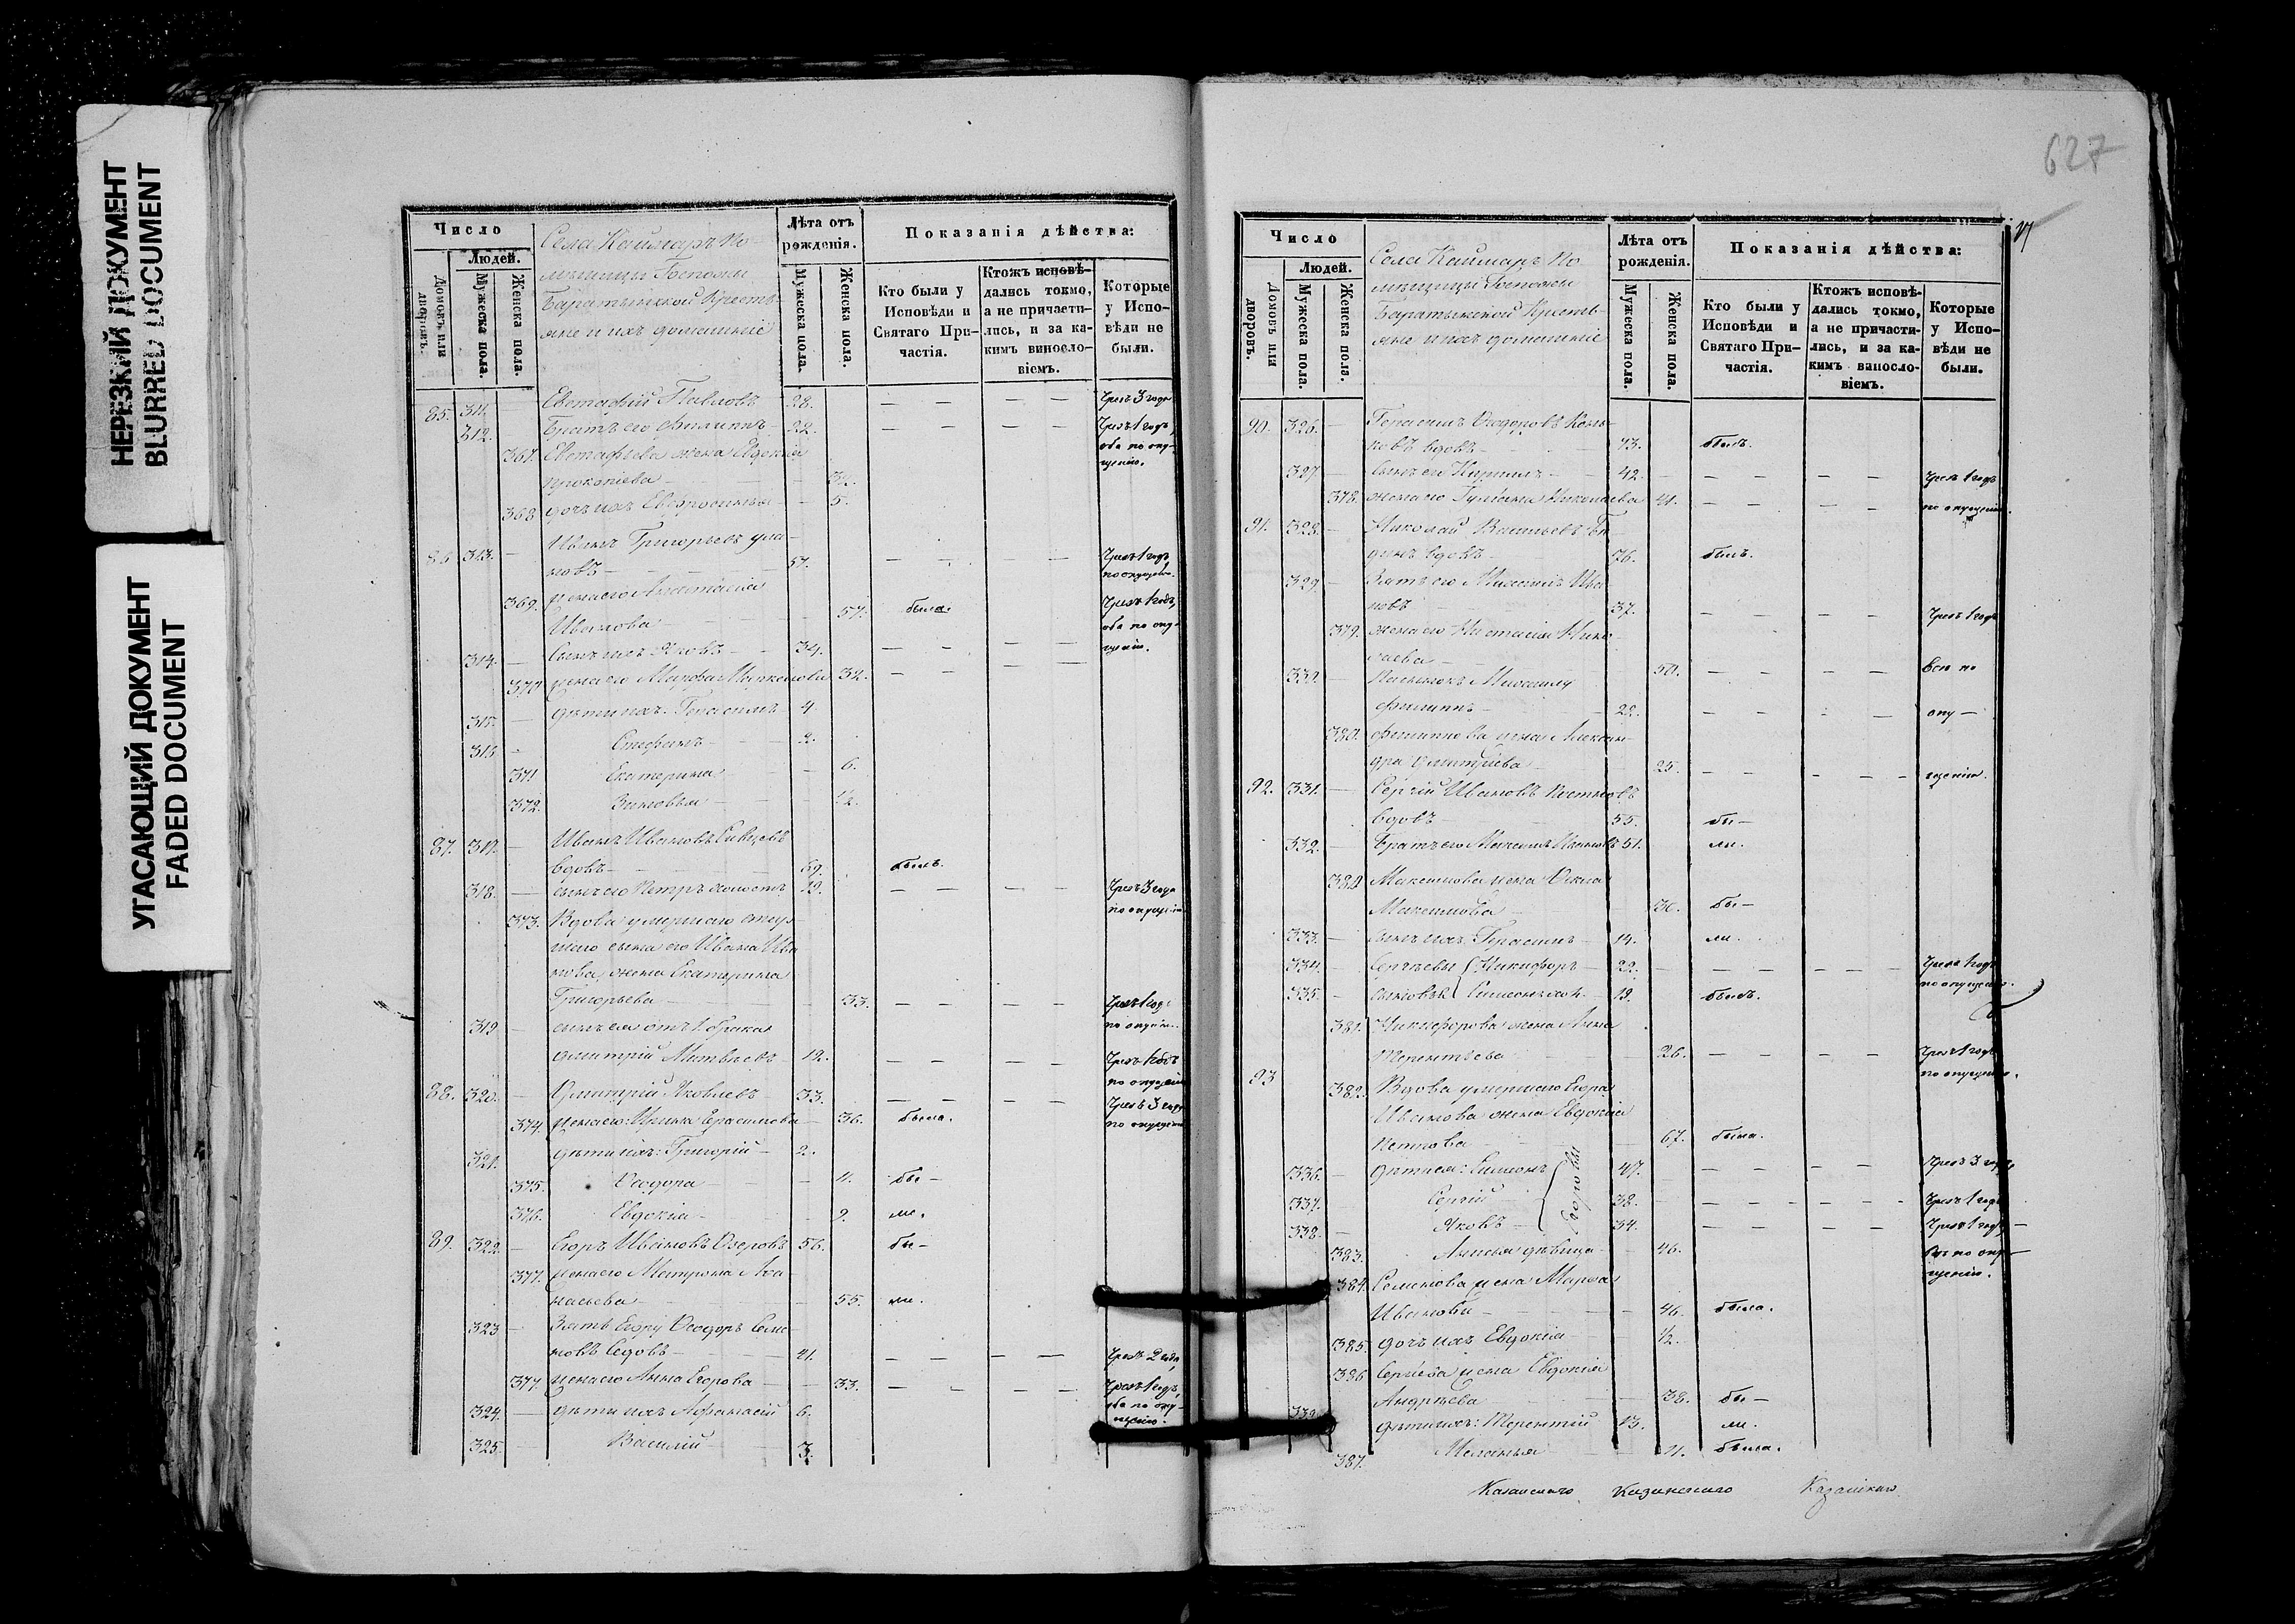 НЕРЕЗКИЙ ДОКУМЕНТ
BLURRED DOCUMENT
УГАСАЮЩИЙ ДОКУМЕНТ
FADED DOCUMENT
Число
Людей.
Домовъ или дворовъ.
Мужеска пола.
Женска пола.
Села Каймаръ По
мѣщицы Госпожи
Баратынской Кресть-
яне и ихъ домашніе
Лѣта отъ рожденія.
Мужеска пола.
Женска пола.
Показанія дѣйства:
Кто были у Исповѣди и Святаго При-частія.
Ктожъ исповѣ-дались токмо, а не причасти-лись, и за ка-кимъ винословіемъ.
Которые у Испо-вѣди не были.
85. 311. — Евстафій Павловъ 28. — — — — Чрезъ 3 года
312. Братъ его Филиппъ — 22. — — — — Чрезъ 1 годъ,
оба по опу-
367. Евстафьева жена Евдокія щенію.
Прокопіева
368 дочь ихъ Евфросинья — — 5.
86 313. — Иванъ Григорьевъ
новъ — 57. — — — — Чрезъ 1 годъ
по опущен.
369. жена его Анастасія
Иванова 57. была. Чрезъ 1 годъ,
оба по опу-
314. — Сынъ ихъ Яковъ — 34. — — — — щенію.
370 жена его Марфа 32. — — — —
315. — дѣти ихъ: Герасимъ — 4
316 — Стефанъ — 2.
371 Екатерина — 6.
372. Зиновья — 1/2.
87. 317. — Иванъ Ивановъ
вдовъ — 69. былъ.
318. — сынъ его Петръ холостъ 19. — — — — Чрезъ 3 года
по опущен
373. Вдова умершаго
сына его Ивана Ива
нова, жена Екатерина
Григорьева — 33. — — — — Чрезъ 1 годъ
319 — сынъ ея отъ 1 брака по опущен.
Дмитрій Матвѣевъ — 12. — — — — Чрезъ 1 годъ
по опущен
88. 320. — Дмитрій Яковлевъ — 33. — — — — Чрезъ 3 года
374. жена его: Ирина Герасимова — 36. была. по опущен
321. дѣти ихъ: Григорій — 2.
375. Ѳеодора — — 11. бы —
376. Евдокія — 9. ли.
89. 322. — Егоръ Ивановъ Озеровъ 56. бы —
377. жена его Матрона Аѳа
насьева — 55. ли.
323 — Зять Егору Ѳеодоръ Семе
новъ Седовъ — 41. — — — — Чрезъ 2 года,
377. жена его Анна Егорова — 33. — — — — Чрезъ 1 годъ,
оба по опу-
324. — дѣти ихъ Афанасій 6. щенію.
325. — Василій — 3.
627
Число
Людей.
Домовъ или дворовъ.
Мужеска пола.
Женска пола.
Села Каймаръ По
мѣщицы Госпожи
Баратынской Кресть-
яне и ихъ домашніе
Лѣта отъ рожденія.
Мужеска пола.
Женска пола.
Показанія дѣйства:
Кто были у Исповѣди и Святаго При-частія.
Ктожъ исповѣ-дались токмо, а не причасти-лись, и за ка-кимъ винословіемъ.
Которые у Испо-вѣди не были.
90. 326. — Герасимъ Ѳеодоровъ
новъ вдовъ — 73. былъ.
327 — сынъ его Кириллъ — 42. — — — — Чрезъ 1 годъ
378. жена его Николаева 41. — — — — по опущенію.
91. 328. — Николай Васильевъ
динъ вдовъ — 76. былъ.
329. — Зять его Михаилъ Ива
новъ 37. — — — — Чрезъ 1 годъ
379. жена его Настасія Нико
лаева — 50. — — — — Всѣ по
330. — Пасынокъ Михаилу
Филиппъ — 22. — — — — опу —
380. Филиппова жена Алексан
дра Дмитріева — 25. — — — — щенію.
92. 331. — Сергій Ивановъ
вдовъ — 55. бы —
332. — Братъ его Максимъ Ивановъ 51. ли.
380 Максимова жена
Максимова — 50. бы —
333. — сынъ ихъ Герасимъ — 14. ли.
334. — Сергѣевы Никифоръ — 22. — — — — Чрезъ 1 годъ
по опущенію.
335. — сыновья Симеонъ хол. — 19. былъ.
381. Никифорова жена Анна
Терентьева — 26. — — — — Чрезъ 1 годъ
по опущенію.
93 382. Вдова умершаго Егора
Иванова жена Евдокія
Петрова — 67. была.
336. — дѣти ея: Симеонъ 47. — — — — Чрезъ 3 года,
337. — Сергій 38. — — — — Чрезъ 1 годъ
338. — Яковъ — 34. — — — — Чрезъ 1 годъ, —
Егоровы
383. Анисья дѣвица — 46. по опу —
щенію.
384. Семенова жена Марфа
Иванова — 46. была.
385. дочь ихъ Евдокія — 1/2.
386 Сергѣева жена Евдокія
Андреева — 38. бы —
339. дѣти ихъ: Терентій 13. ли.
387. Меланья — 11. была.
Казанскаго Казанскаго Казанскаго